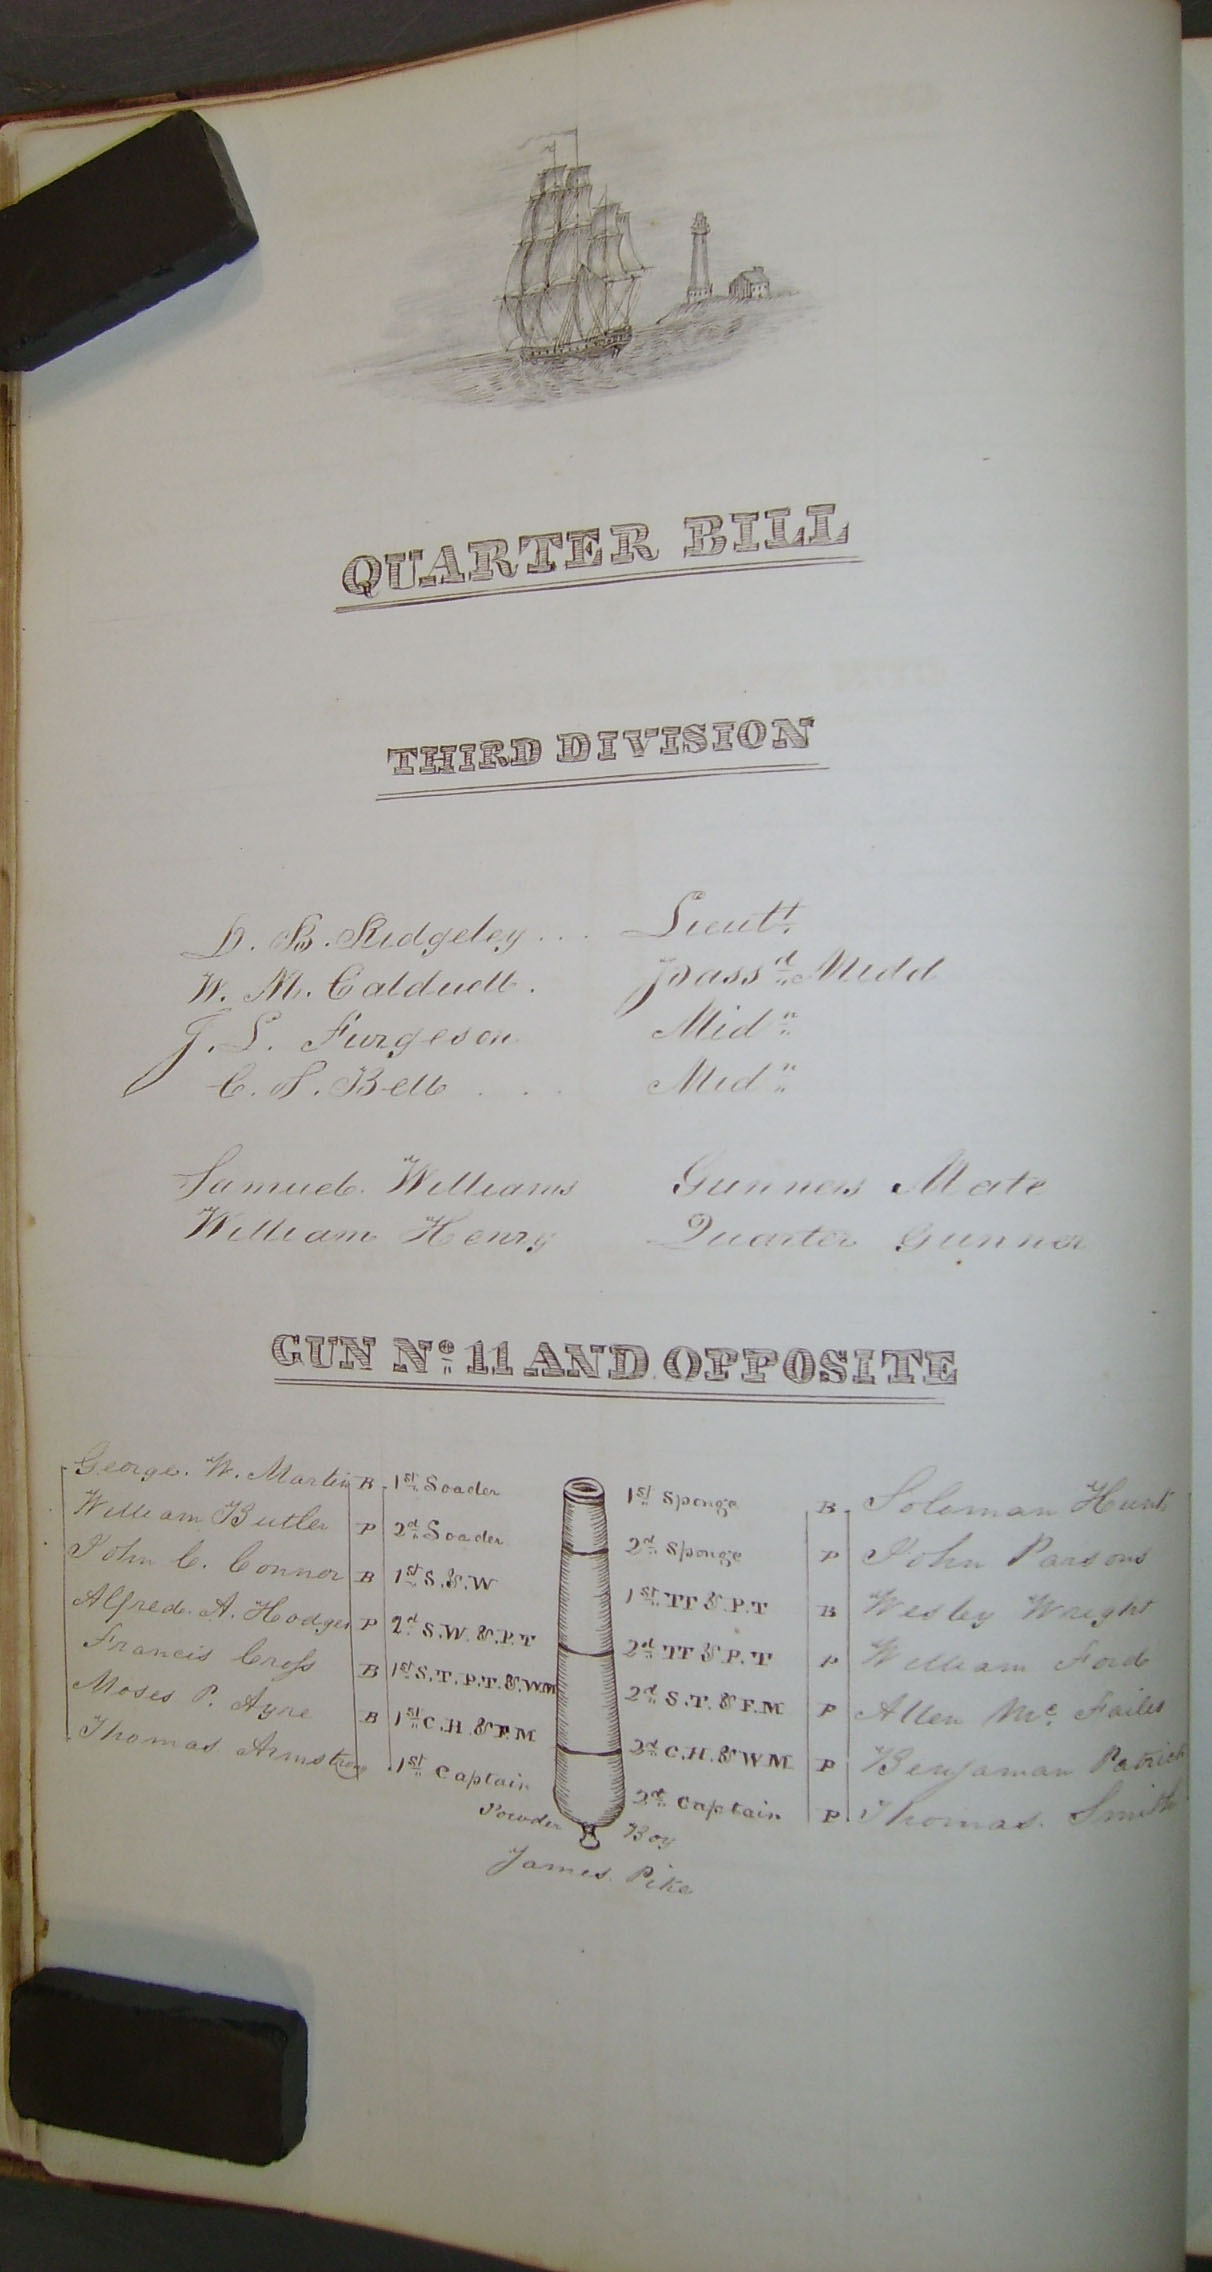 QUARTER BILL
THIRD DIVISION
D. B. Ridgeley ... Lieutt.
W. M. Caldwell . passd Midd
J. L. Furgeson Midn
C. S. Bell ... Midn
Samuel Williams Gunners Mate
William Henry Quarter Gunner
GUN No. 11 AND OPPOSITE
George. W. Martin B 1st Loader 1st Sponge B Soloman Hunt
William Butler P 2d Loader 2d Sponge P John Parsons
John C. Connor B 1st S. & W 1st TT & P.T B Wesley Wright
Alfred. A. Hodges P 2d S.W. & P.T 2d TT & P.T P William Ford
Francis Cross B 1st S.T. P.T. & WM 2d S.T. & F.M P Allen Mc. Failes
Moses P. Ayre B 1st C.H. & F.M 2d C.H. & WM P Benjaman Patrick
Thomas Armstrong 1st Captain 2d Captain P Thomas. Smith
Powder Boy
James Pike